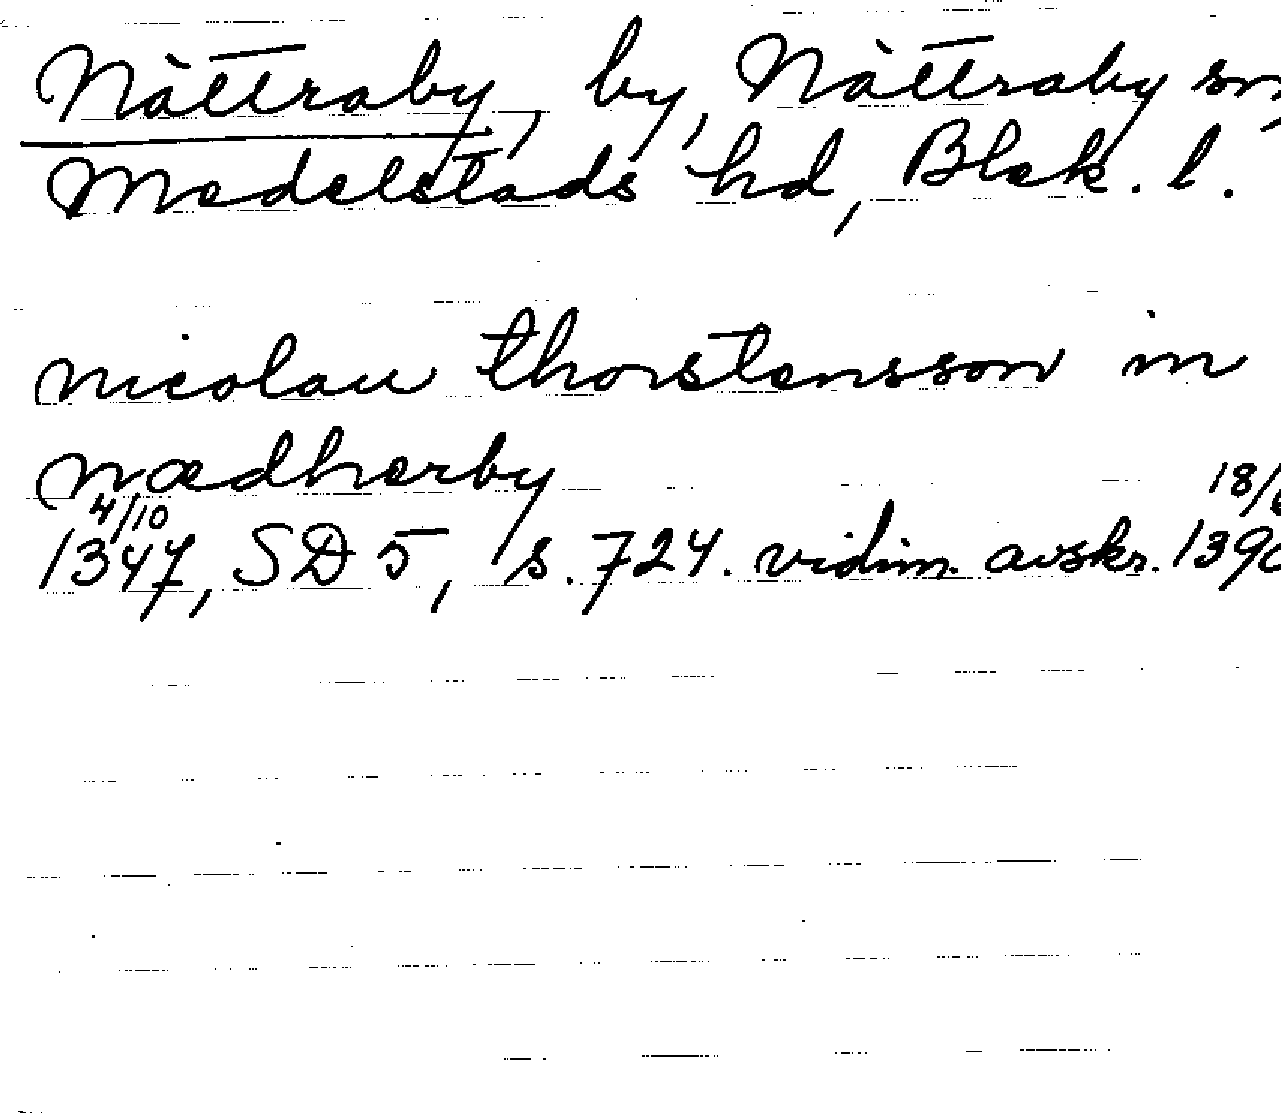 Nättraby, by, Nättraby sn,
Medelstads hd, Blek. l.
nicolau thorstensson in
nædherby
4/10 18/
1347, SD 5, s. 724. vidim. avskr. 1390